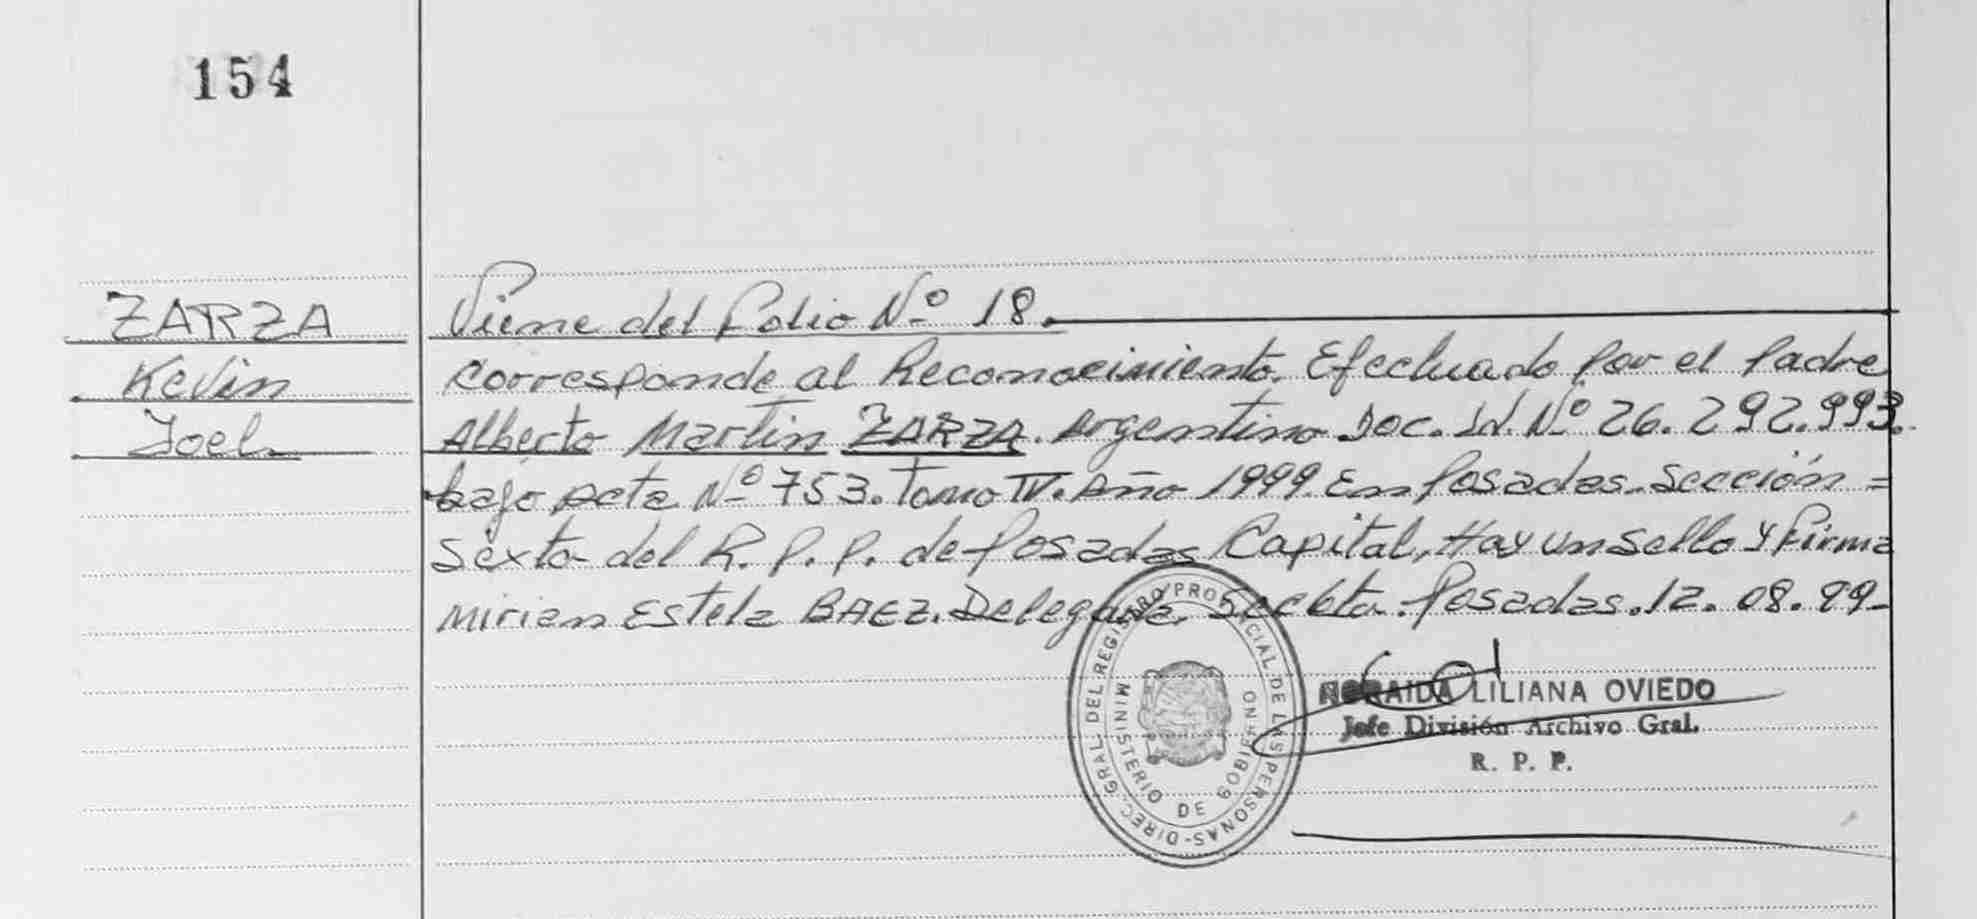 154
ZARZA
Kevin
Joel.
Viene del folio Nº 18.
Corresponde al Reconocimiento. Efectuado por el Padre
Alberto Martin ZARZA. Argentino Doc. Nº 26.292.993.
bajo acta Nº 753. Tomo IV. Año 1999. En Posadas. Sección =
Sexta del R. P. P. de Posadas Capital, Hay un Sello y Firma
Mirian Estela BAEZ. Delegada. Posadas. 12. 08. 99-
DIREC. GRAL. DEL REGISTRO PROVINCIAL DE LAS PERSONAS-
MINISTERIO DE GOBIERNO
LILIANA OVIEDO
Jefe División Archivo Gral.
R. P. P.